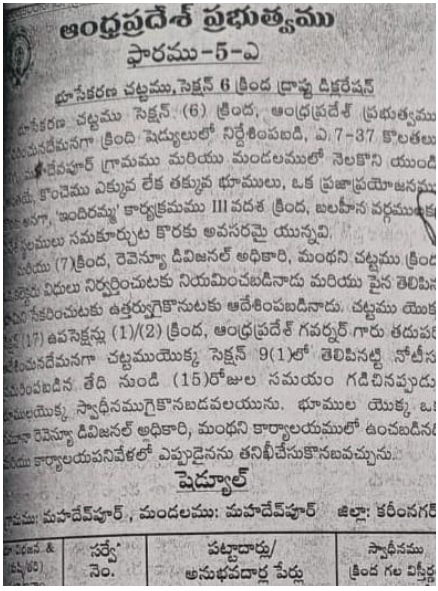 ఆంధ్రప్రదేశ్ ప్రభుత్వము
ఫారము-5-ఎ
భూసేకరణ చట్టము,సెక్షన్ 6 క్రింద డ్రాఫ్టు డిక్లరేషన్
భూసేకరణ చట్టము సెక్షన్ (6) క్రింద, ఆంధ్రప్రదేశ్ ప్రభుత్వము
క్రింది షెడ్యులులో నిర్దేశింపబడి, ఎ.7-37 కొలతలు
గ్రామము మరియు మండలములో నెలకొని యుండి
కొంచెము ఎక్కువ లేక తక్కువ భూములు, ఒక ప్రజాప్రయోజనము
అనగా, 'ఇందిరమ్మ' కార్యక్రమము III వదశ క్రింద, బలహీన వర్గములకు
సమకూర్చుట కొరకు అవసరమై యున్నవి.
మరియు (7)క్రింద, రెవెన్యూ డివిజనల్ అధికారి, మంథని చట్టము క్రింద
విధులు నిర్వర్తించుటకు నియమించబడినాడు మరియు పైన తెలిపిన
సేకరించుటకు ఉత్తర్వుగైకొనుటకు ఆదేశింపబడినాడు. చట్టము యొక్క
(17) ఉపసెక్షన్లు (1)/(2) క్రింద, ఆంధ్రప్రదేశ్ గవర్నర్ గారు తదుపరి
చట్టముయొక్క సెక్షన్ 9(1)లో తెలిపినట్టి నోటీసు
తేది నుండి (15)రోజుల సమయం గడిచినప్పుడు
స్వాధీనముగైకొనబడవలయును. భూముల యొక్క ఒక
రెవెన్యూ డివిజనల్ అధికారి, మంథని కార్యాలయములో ఉంచబడినది
కార్యాలయపనివేళలో ఎప్పుడైనను తనిఖీచేసుకొనబవచ్చును.
షెడ్యూల్
గ్రామము: మహదేవ్‌పూర్, మండలము: మహదేవ్‌పూర్ జిల్లా: కరీంనగర్
సర్వే పట్టాదార్లు/ స్వాధీనము
నెం. అనుభవదార్ల పేర్లు క్రింద గల విస్తీర్ణ